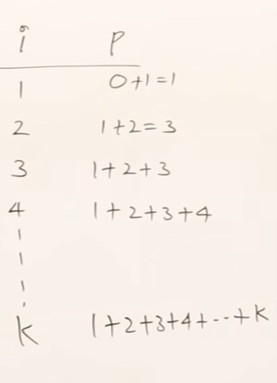 i P
1 0+1=1
2 1+2=3
3 1+2+3
4 1+2+3+4
k 1+2+3+4+--+k